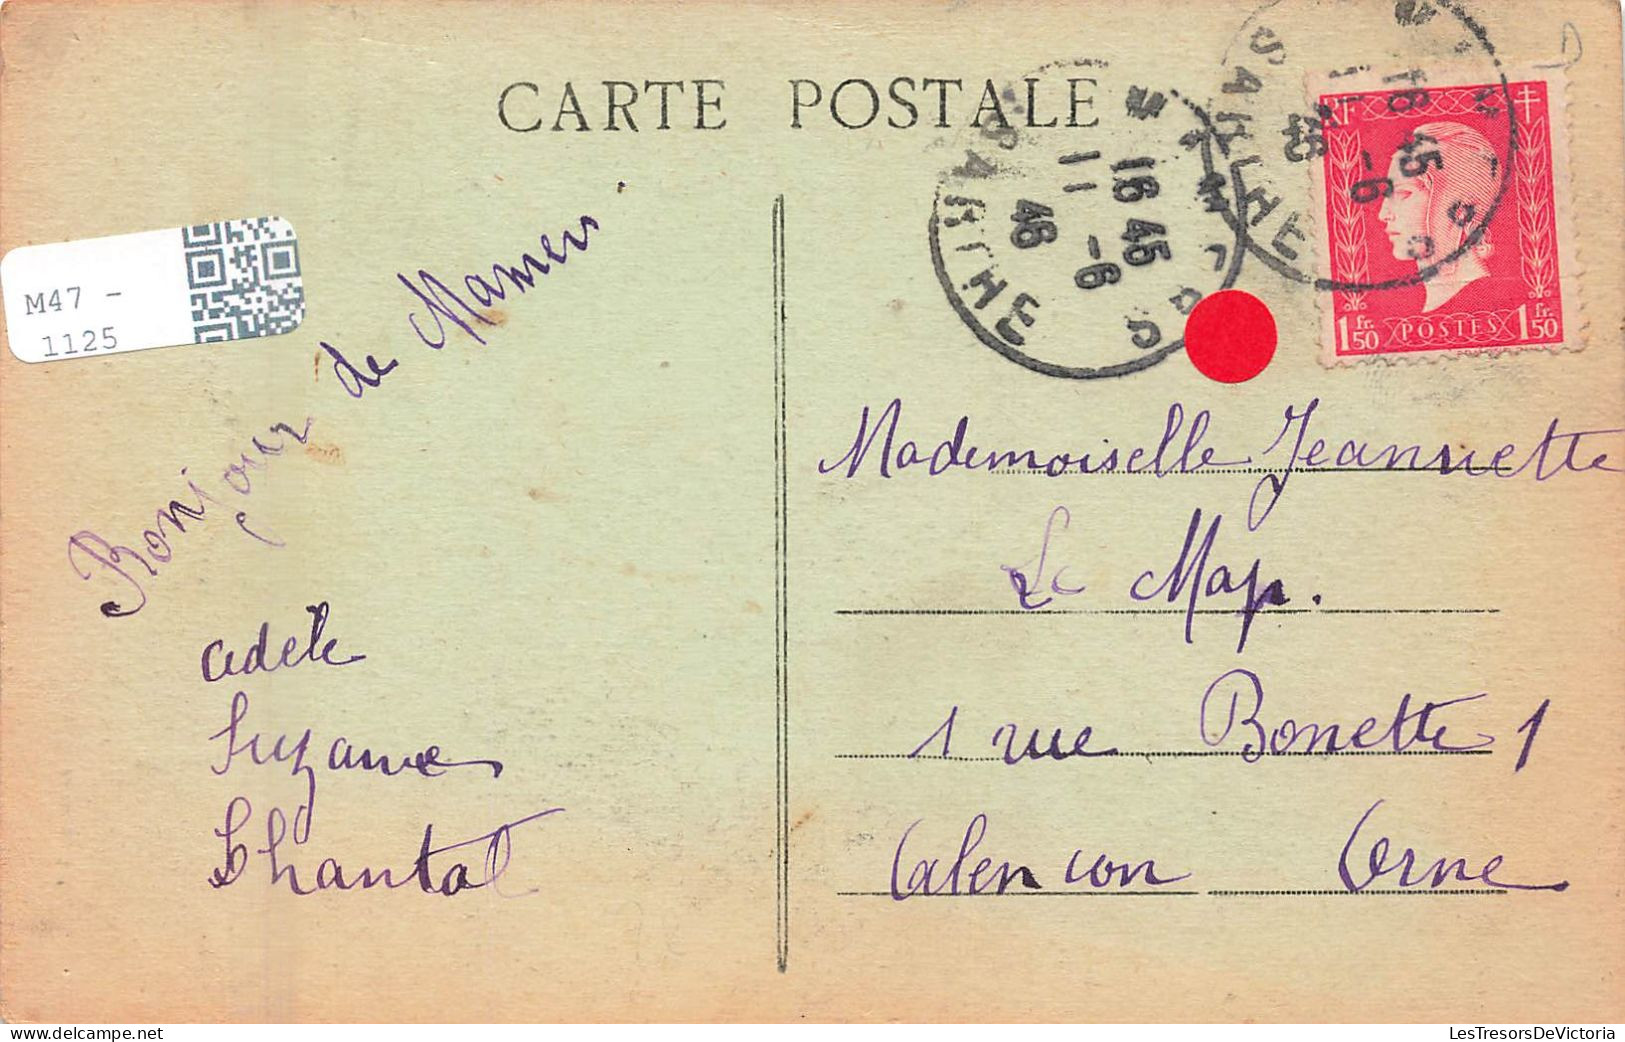 CARTE POSTALE
M47 -
1125
Bonjour de Mamers
Adèle
Suzanne
Chantal
SARTHE
16 45
11 -6
46
SARTHE
16 45
11 -6
46
RF
1 fr. 50 POSTES 1 fr. 50
Mademoiselle Jeannette
Le Map.
1 rue Bonette 1
Alencon Orne
LesTresorsDeVictoria.com